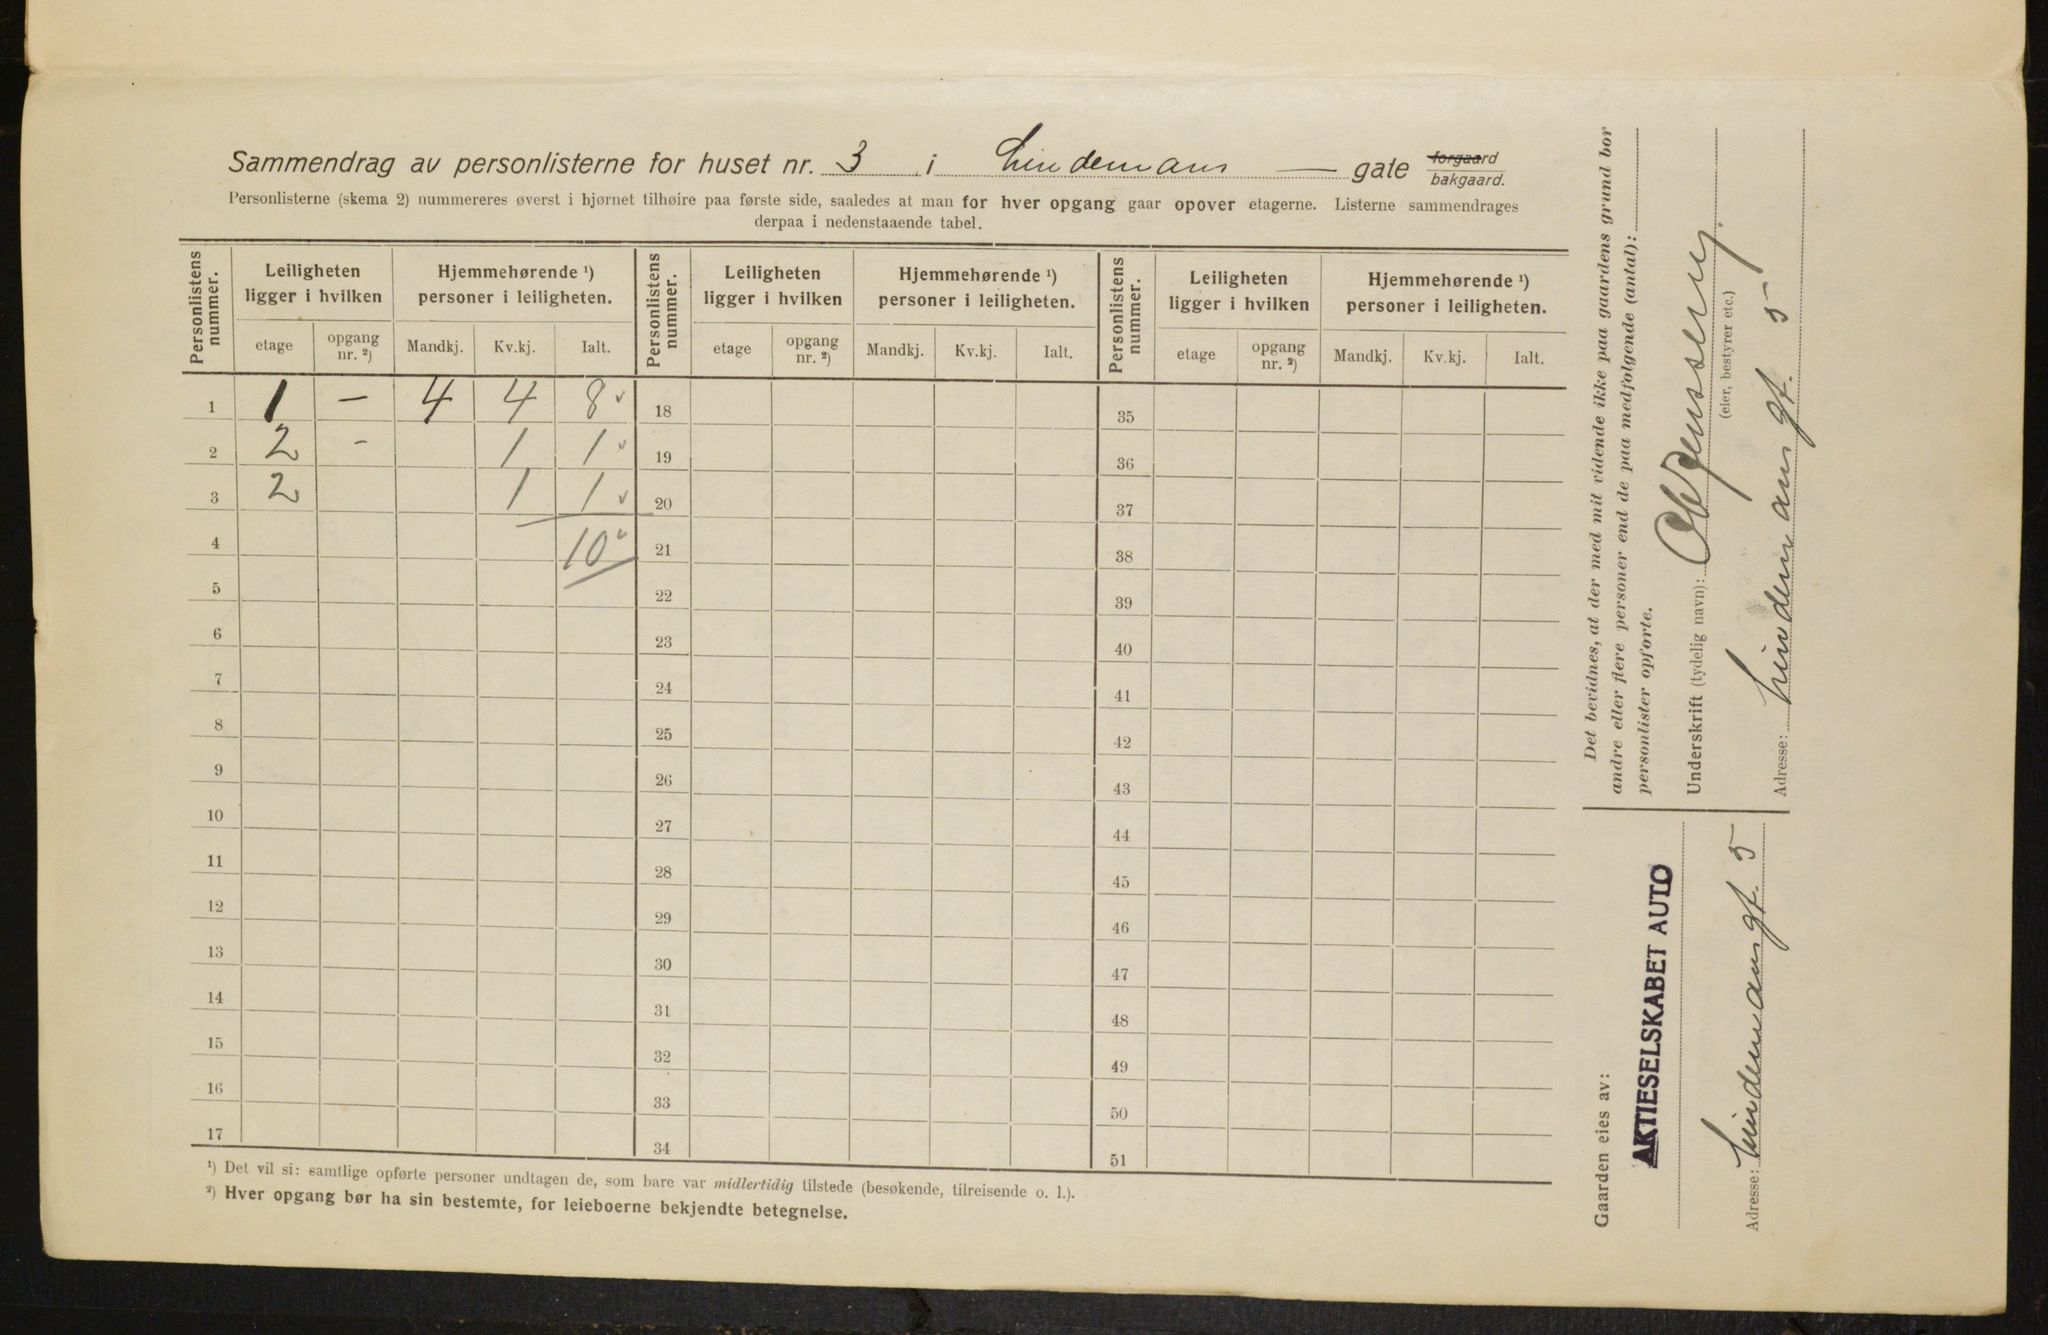 Sammendrag av personlisterne for huset nr. 3 i Lindemans — gate forgaard
bakgaard.
Personlisterne (skema 2) nummereres øverst i hjørnet tilhøire paa første side, saaledes at man for hver opgang gaar opover etagerne. Listerne sammendrages
derpaa i nedenstaaende tabel.
Personlistens nummer. Leiligheten ligger i hvilken Hjemmehørende ¹) personer i leiligheten. Personlistens nummer. Leiligheten ligger i hvilken Hjemmehørende ¹) personer i leiligheten. Personlistens nummer. Leiligheten ligger i hvilken Hjemmehørende ¹) personer i leiligheten.
etage opgang nr. ²) Mandkj. Kv.kj. Ialt. etage opgang nr. ²) Mandkj. Kv.kj. Ialt. etage opgang nr. ²) Mandkj. Kv.kj. Ialt.
1 1 — 4 4 8 ✓ 18 35
2 2 - 1 1 ✓ 19 36
3 2 1 1 ✓ 20 37
4 10 ✓ 21 38
5 22 39
6 23 40
7 24 41
8 25 42
9 26 43
10 27 44
11 28 45
12 29 46
13 30 47
14 31 48
15 32 49
16 33 50
17 34 51
¹) Det vil si: samtlige opførte personer undtagen de, som bare var midlertidig tilstede (besøkende, tilreisende o. l.).
²) Hver opgang bør ha sin bestemte, for leieboerne bekjendte betegnelse.
Det bevidnes, at der med mit vidende ikke paa gaardens grund bor
andre eller flere personer end de paa medfølgende (antal):
personlister opførte.
Underskrift (tydelig navn):
(eier, bestyrer etc.)
Adresse: Lindemansgt. 5
Gaarden eies av:
AKTIESELSKABET AUTO
Adresse: Lindemansgt. 5